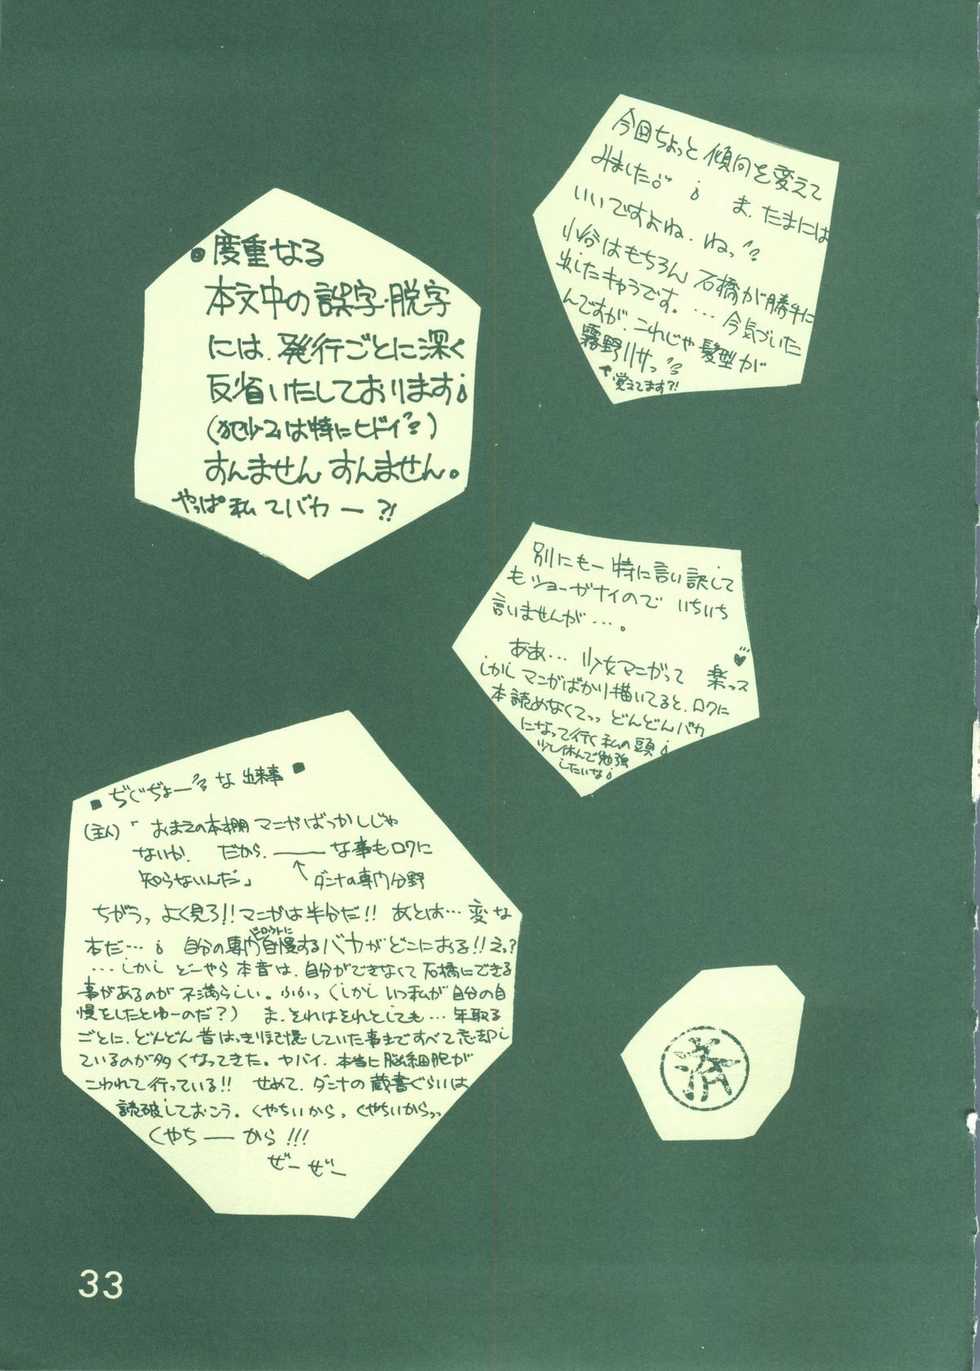 今回ちょっと傾向を変えて
みました。ま、たまには
いいですよね、ねっ
小谷はもちろん石橋が勝手に
出したキャラです。…今気づいた
んですが、これじゃ髪型が
霧野リサっ
覚えてます?!
●度重なる
本文中の誤字・脱字
には、発行ごとに深く
反省いたしております
(犯少2は特にヒドイ)
すんませんすんません。
やっぱ私てバカー?!
別にもー特に言い訳して
もショーガナイのでいちいち
言いませんが…。
ああ…少女マニがって楽っス
しかしマニがばかり描いてると、ロクに
本読めなくてっっどんどんバカ
になって行く私の頭
少し休んで勉強
したいな
■ぢぐぢょーな出来事■
(主人)「おまえの本棚マニがばっかしじゃ
ないか。だから、――な事もロクに
知らないんだ」 ↑ダンナの専門分野
ちがうっ、よく見ろ!!マニがは半分だ!!あとは…変な
本だ…自分の専門自慢するバカがどこにおる!!えっ?
…しかしどーやら本音は、自分ができなくて石橋にできる
事があるのが不満らしい。ふふっ(しかしいつ私が自分の自
慢をしたとゆーのだ?)ま、それはそれとしても…年取る
ごとに、どんどん昔はっきり記憶していた事まですべて忘却し
ているのが多くなってきた。ヤバイ、本当に脳細胞が
こわれて行っている!!せめて、ダンナの蔵書ぐらいは
読破しておこう。くやちいから、くやちいからっっ
くやちーから!!!
ぜーぜー
33